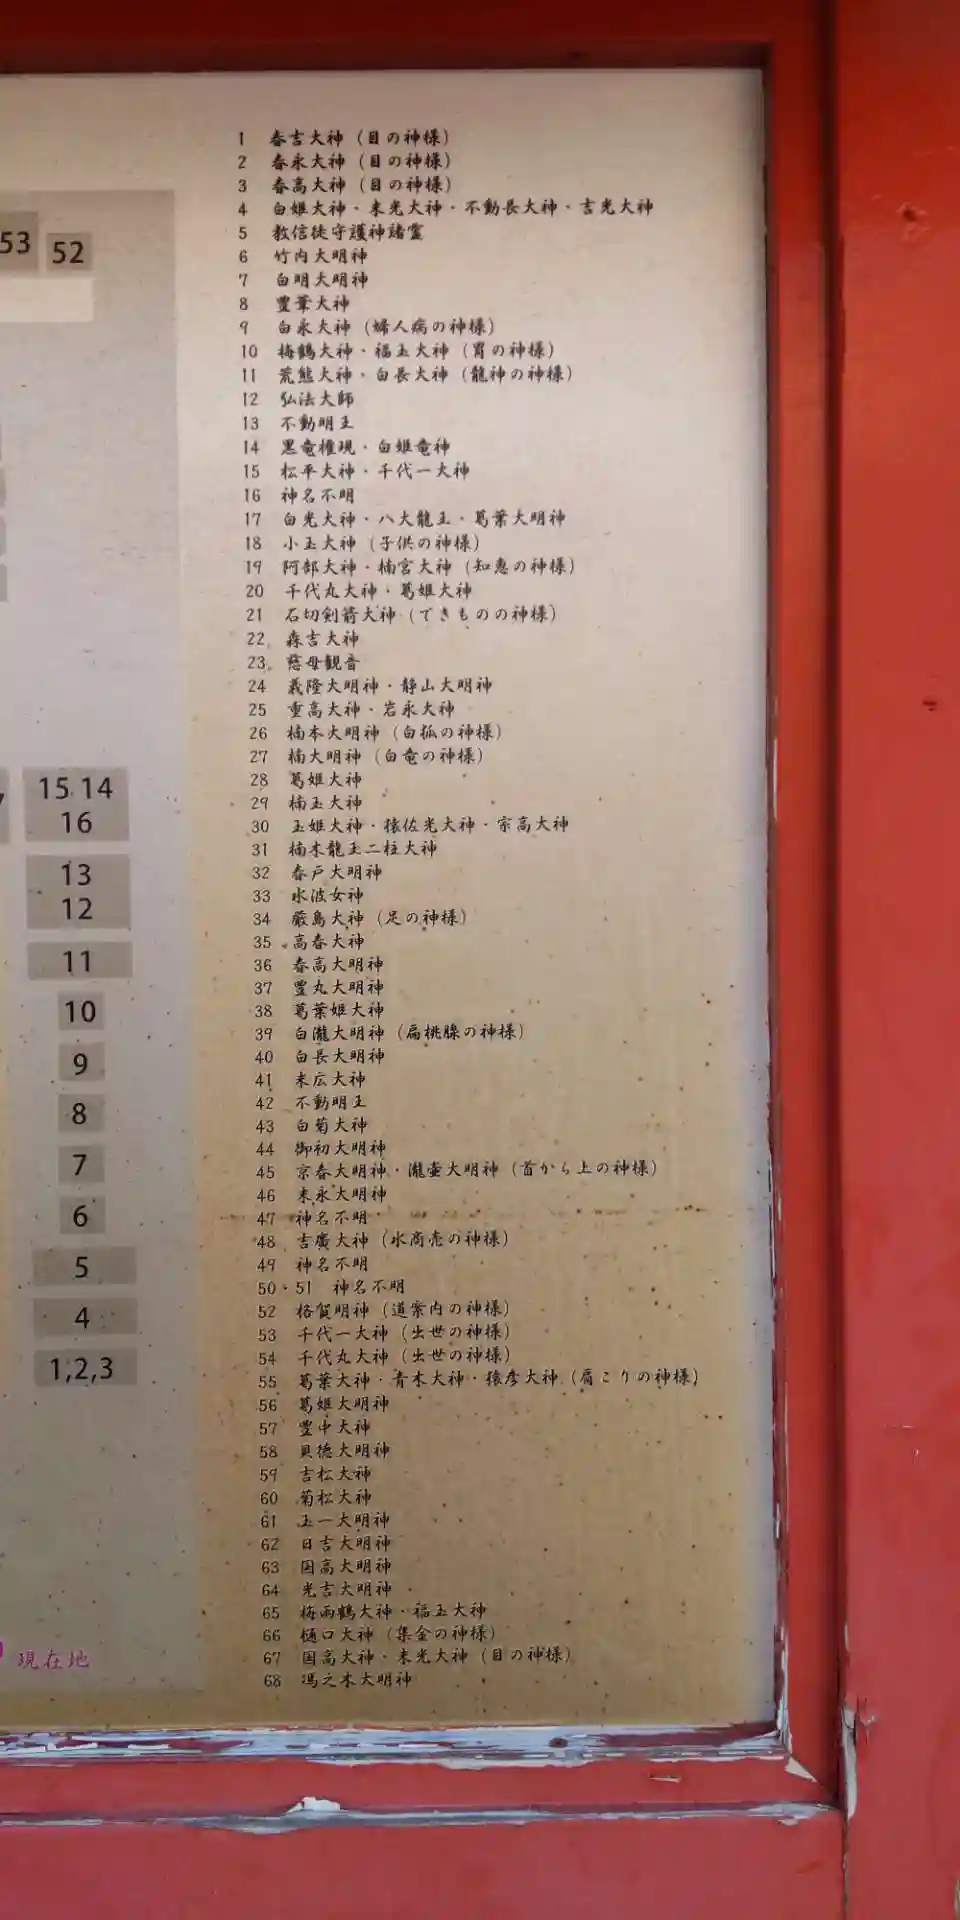 53 52
15 14
16
13
12
11
10
9
8
7
6
5
4
1,2,3
現在地
1 春吉大神（目の神様）
2 春永大神（目の神様）
3 春高大神（目の神様）
4 白姫大神・末光大神・不動長大神・吉光大神
5 教信徒守護神諸霊
6 竹内大明神
7 白明大明神
8 豊葉大神
9 白永大神（婦人病の神様）
10 梅鶴大神・福玉大神（胃の神様）
11 荒熊大神・白長大神（龍神の神様）
12 弘法大師
13 不動明王
14 黒竜権現・白姫竜神
15 松平大神・千代一大神
16 神名不明
17 白光大神・八大龍王・葛葉大明神
18 小玉大神（子供の神様）
19 阿部大神・楠宮大神（知恵の神様）
20 千代丸大神・葛姫大神
21 石切剣箭大神（できものの神様）
22 森吉大神
23 慈母観音
24 義隆大明神・静山大明神
25 重高大神・岩永大神
26 楠本大明神（白狐の神様）
27 楠大明神（白竜の神様）
28 葛姫大神
29 楠玉大神
30 玉姫大神・猿佐光大神・宗高大神
31 楠木龍王二柱大神
32 春戸大明神
33 水波女神
34 厳島大神（足の神様）
35 高春大神
36 春高大明神
37 豊丸大明神
38 葛葉姫大神
39 白瀧大明神（扁桃腺の神様）
40 白長大明神
41 末広大神
42 不動明王
43 白菊大神
44 御初大明神
45 京春大明神・瀧壷大明神（首から上の神様）
46 末永大明神
47 神名不明
48 吉廣大神（水商売の神様）
49 神名不明
50・51 神名不明
52 格賀明神（道案内の神様）
53 千代一大神（出世の神様）
54 千代丸大神（出世の神様）
55 葛葉大神・青木大神・猿彦大神（肩こりの神様）
56 葛姫大明神
57 豊中大神
58 貝徳大明神
59 吉松大神
60 菊松大神
61 玉一大明神
62 日吉大明神
63 国高大明神
64 光吉大明神
65 梅雨鶴大神・福玉大神
66 樋口大神（集金の神様）
67 国高大神・末光大神（目の神様）
68 馮之木大明神